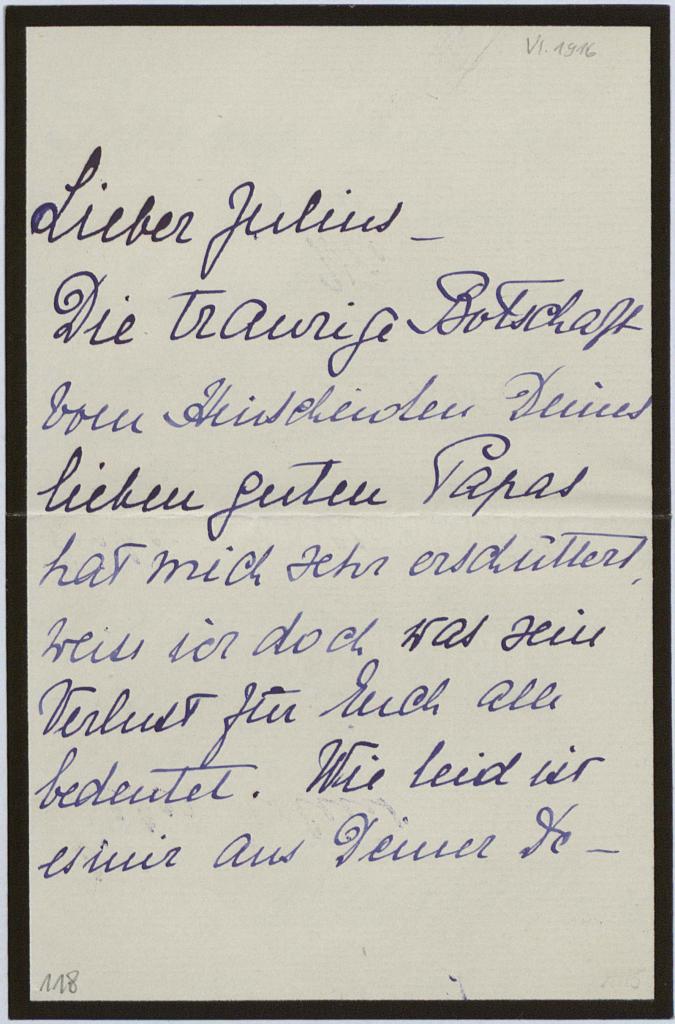 VI. 1916
Lieber Julius –
Die traurige Botschaft
vom Hinscheiden Deines
lieben guten Papas
hat mich sehr erschüttert,
weiss ich doch was sein
Verlust für Euch alle
bedeutet. Wie leid ist
es mir aus Deiner De –
118